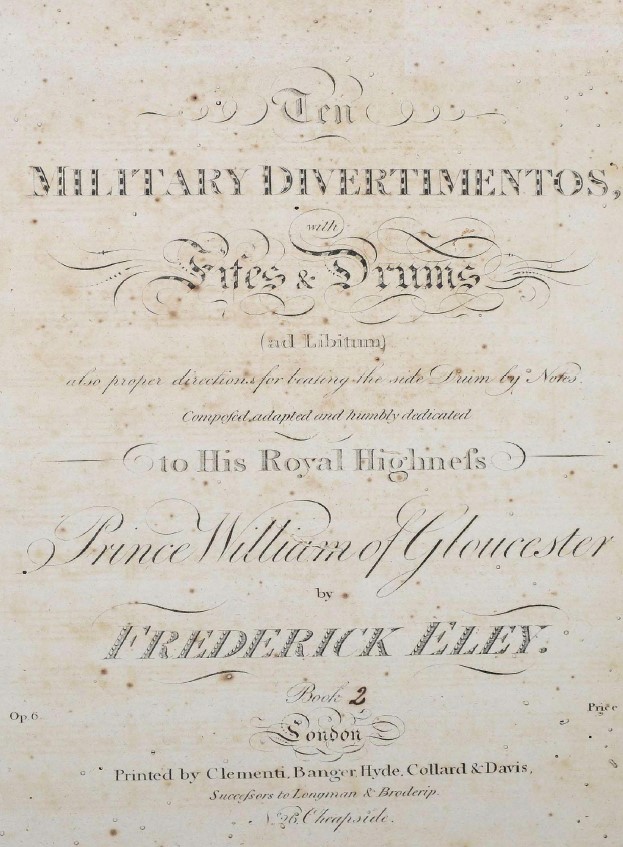 Ten
MILITARY DIVERTIMENTOS,
with
Fifes & Drums
(ad Libitum)
also proper directions for beating the side Drum by Notes.
Compoſed, adapted and humbly dedicated
to His Royal Highneſs
Prince William of Gloucester
by
FREDERICK ELEY.
Book 2
Op. 6.
Price
London
Printed by Clementi, Banger, Hyde, Collard & Davis,
Succeſsors to Longman & Broderip.
No. 26, Cheapside.